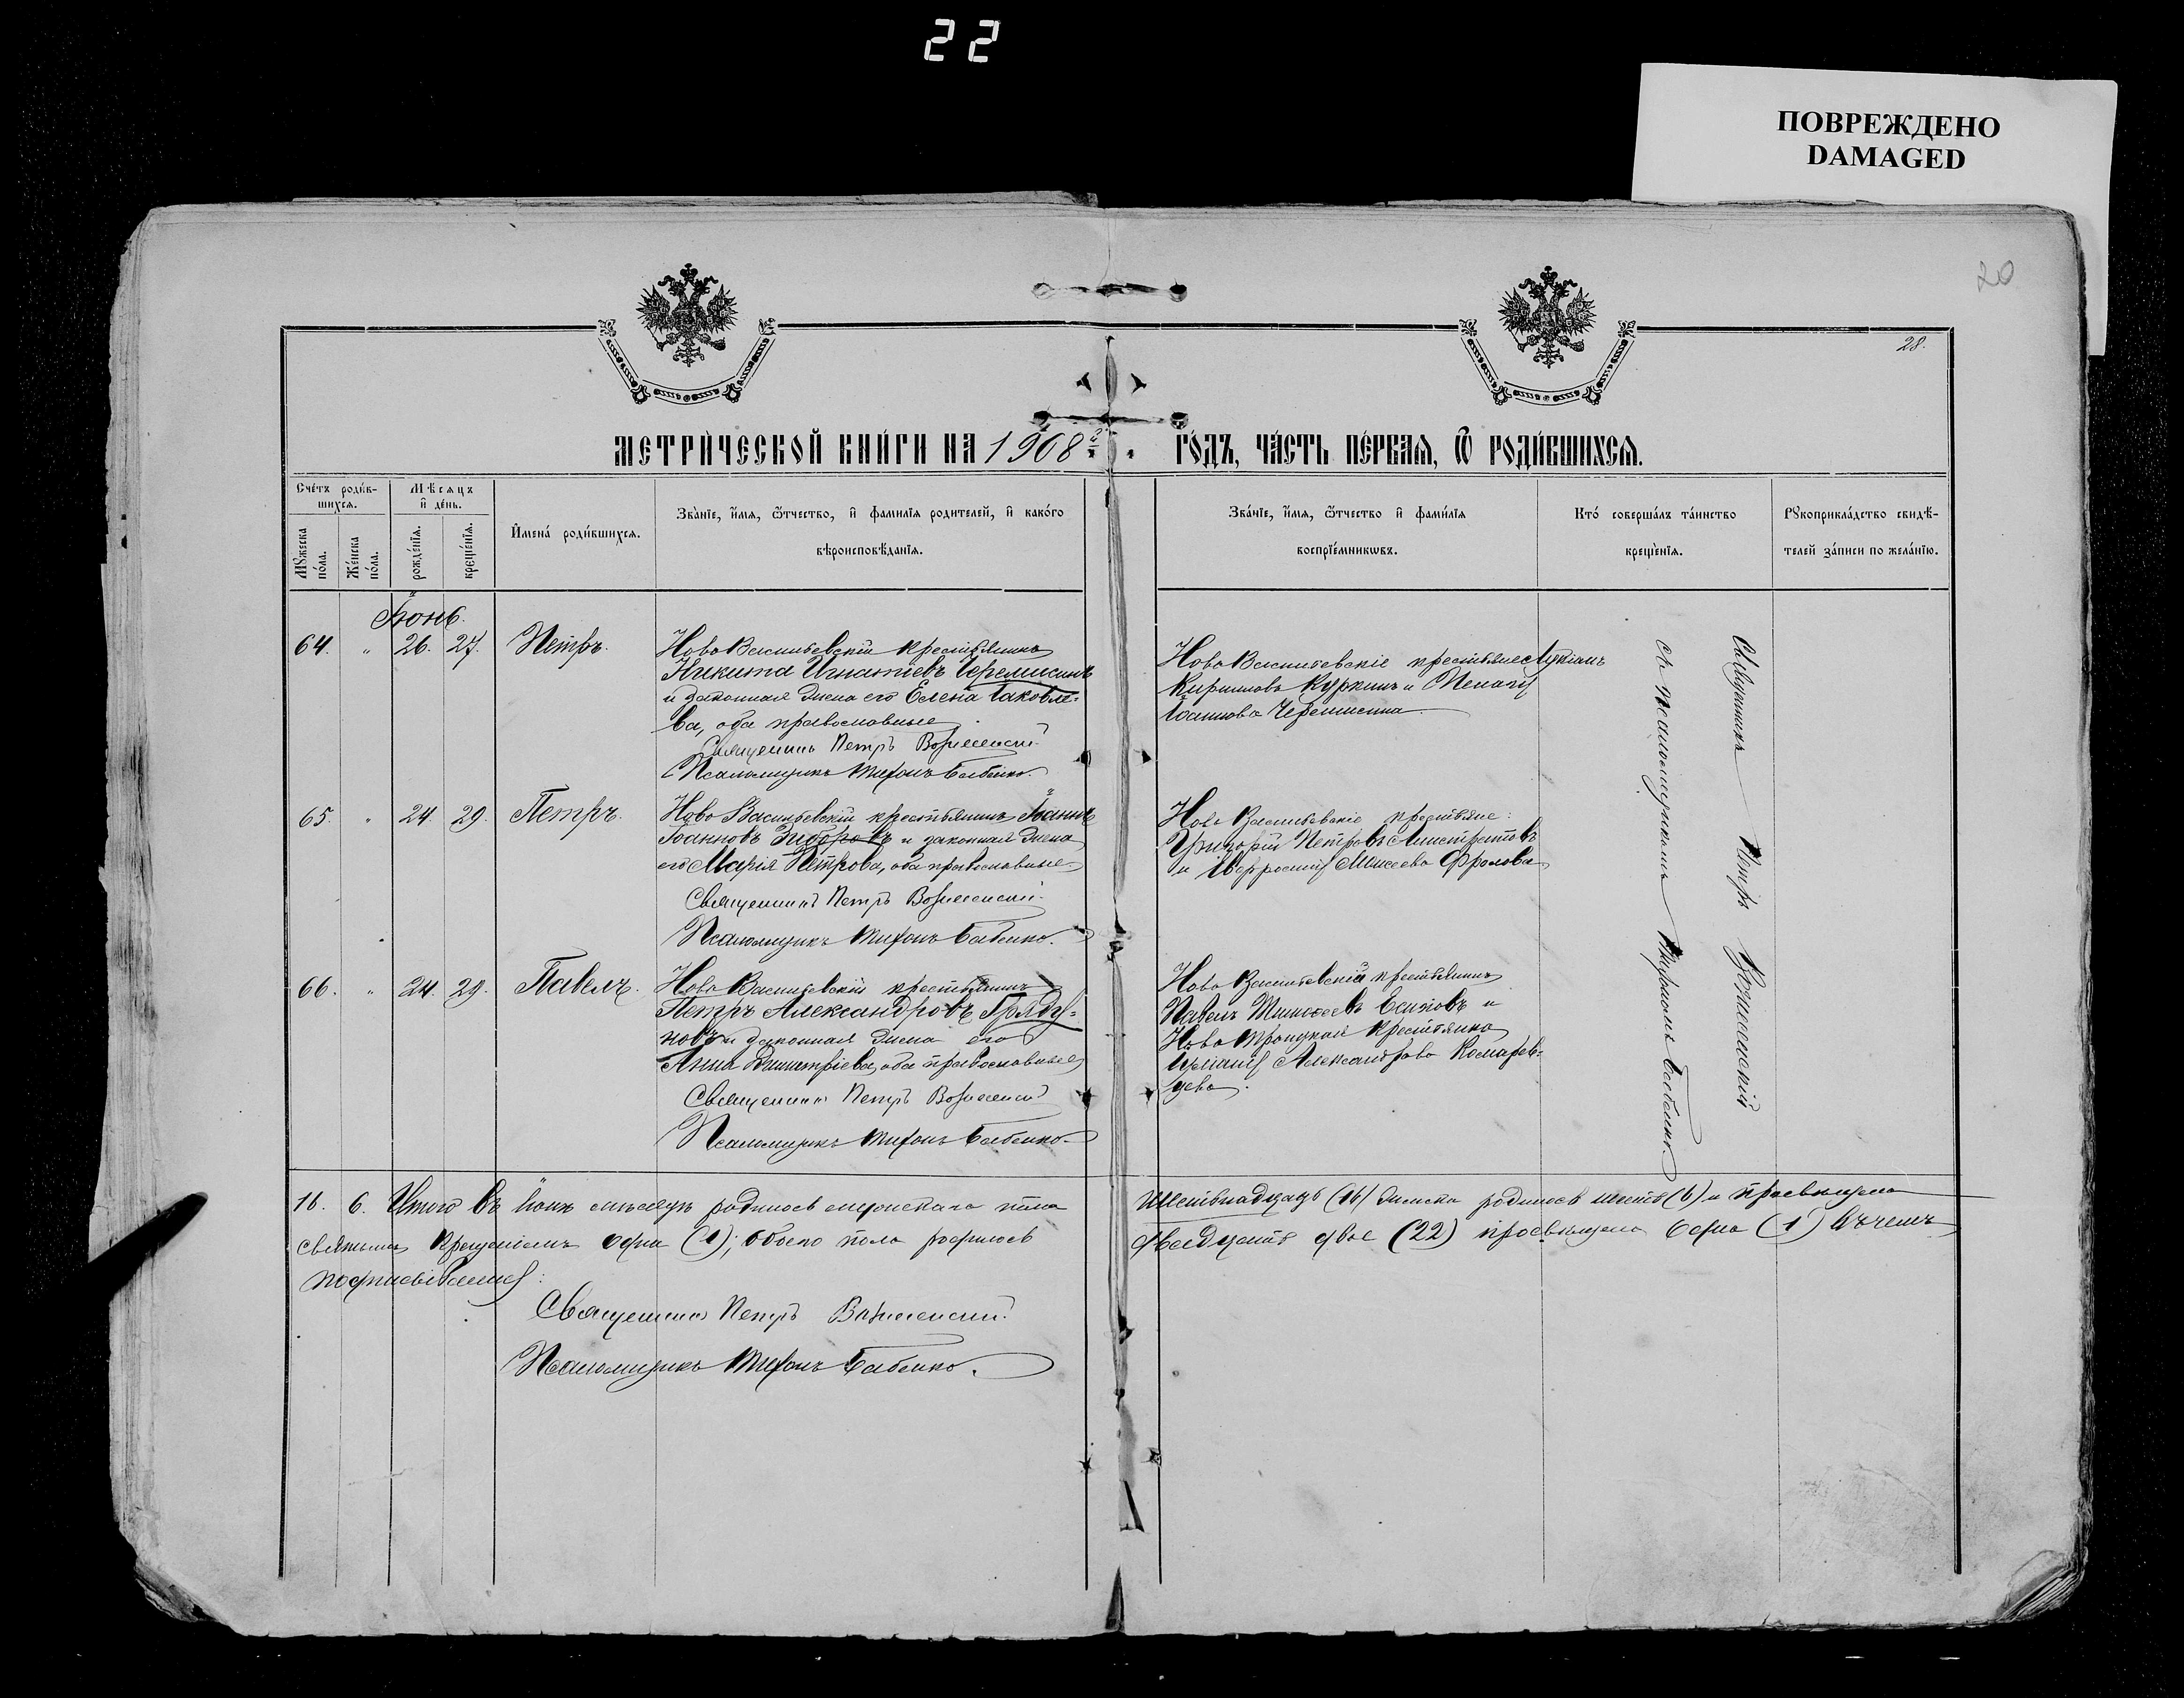 22
ПОВРЕЖДЕНО
DAMAGED
20
28.
МЕТРИ́ЧЕСКОЙ КНИ́ГИ НА 1908 г. ГО́ДЪ, ЧА́СТЬ ПЕ́РВАѦ, Ѿ РОДИ́ВШИХСѦ.
Сче́тъ роди́в-
шихсѧ.
Мѣсѧцъ
и҆ де́нь.
Мꙋ́жеска
по́ла.
Же́нска
по́ла.
рожде́нїѧ.
креще́нїѧ.
И҆мена́ роди́вшихсѧ.
Зва́нїе, и҆́мѧ, ѻ҆́тчество, и҆ фамилїѧ родителей, и҆ како́го
вѣроисповѣ́данїѧ.
Зва́нїе, и҆́мѧ, ѻ҆́тчество и҆ фами́лїѧ
воспрїе́мникѡвъ.
Кто́ соверша́лъ та́инство
креще́нїѧ.
Рꙋкоприкла́дство свидѣ́-
телей за́писи по жела́нїю.
Іюнь.
64. " 26. 27. Петръ.
Ново Васильевскій крестьянинъ
Никита Игнатіевъ Черемисинъ
и законная жена его Елена Іаковле-
ва, оба православные
Священникъ Петръ Вознесенскій
Псаломщикъ Тихонъ Бабенко.
Ново Васильевскіе крестьяне Лукіанъ
Кирилловъ Куркинъ и Пелагія
Іоаннова Черемисина
65. " 24. 29. Петръ.
Ново Васильевскій крестьянинъ Іоаннъ
Іоанновъ Зибровъ и законная жена
его Марія Петрова, оба православные
Священникъ Петръ Вознесенскій
Псаломщикъ Тихонъ Бабенко.
Ново Васильевскіе крестьяне:
Григорій Петровъ
и Евфросинія Моисеева Фролова
66. " 24. 29. Павелъ.
Ново Васильевскій крестьянинъ
Петръ Александровъ Гряду-
новъ и законная жена его
Анна Димитріева, оба православные
Священникъ Петръ Вознесенскій
Псаломщикъ Тихонъ Бабенко.
Ново Васильевскій крестьянинъ
Павелъ Тимоѳеевъ Есиповъ и
Ново Троицкая крестьянка
Александрова Комарев-
цева.
Священникъ Петръ Вознесенскій
съ псаломщикомъ Тихономъ Бабенко.
16. 6. Итого въ Іюнѣ мѣсяцѣ родилось мужскаго пола шестьнадцать (16) женска родилось шесть (6) и просвѣщена
святымъ крещеніемъ одна (1); обоего пола родилось двадцать двое (22) просвѣщена одна (1) въ чемъ
подписываемся:
Священникъ Петръ Вознесенскій.
Псаломщикъ Тихонъ Бабенко.